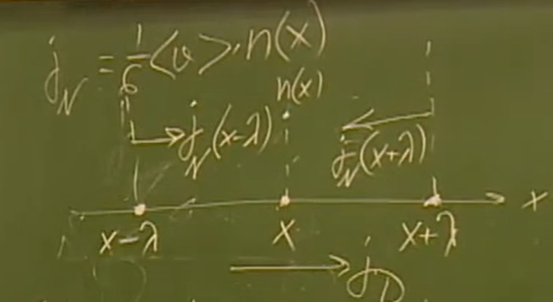 j_N = 1/6 <v>·n(x)
n(x)
j_N(x-λ)
j_N(x+λ)
x-λ x x+λ x
j_D